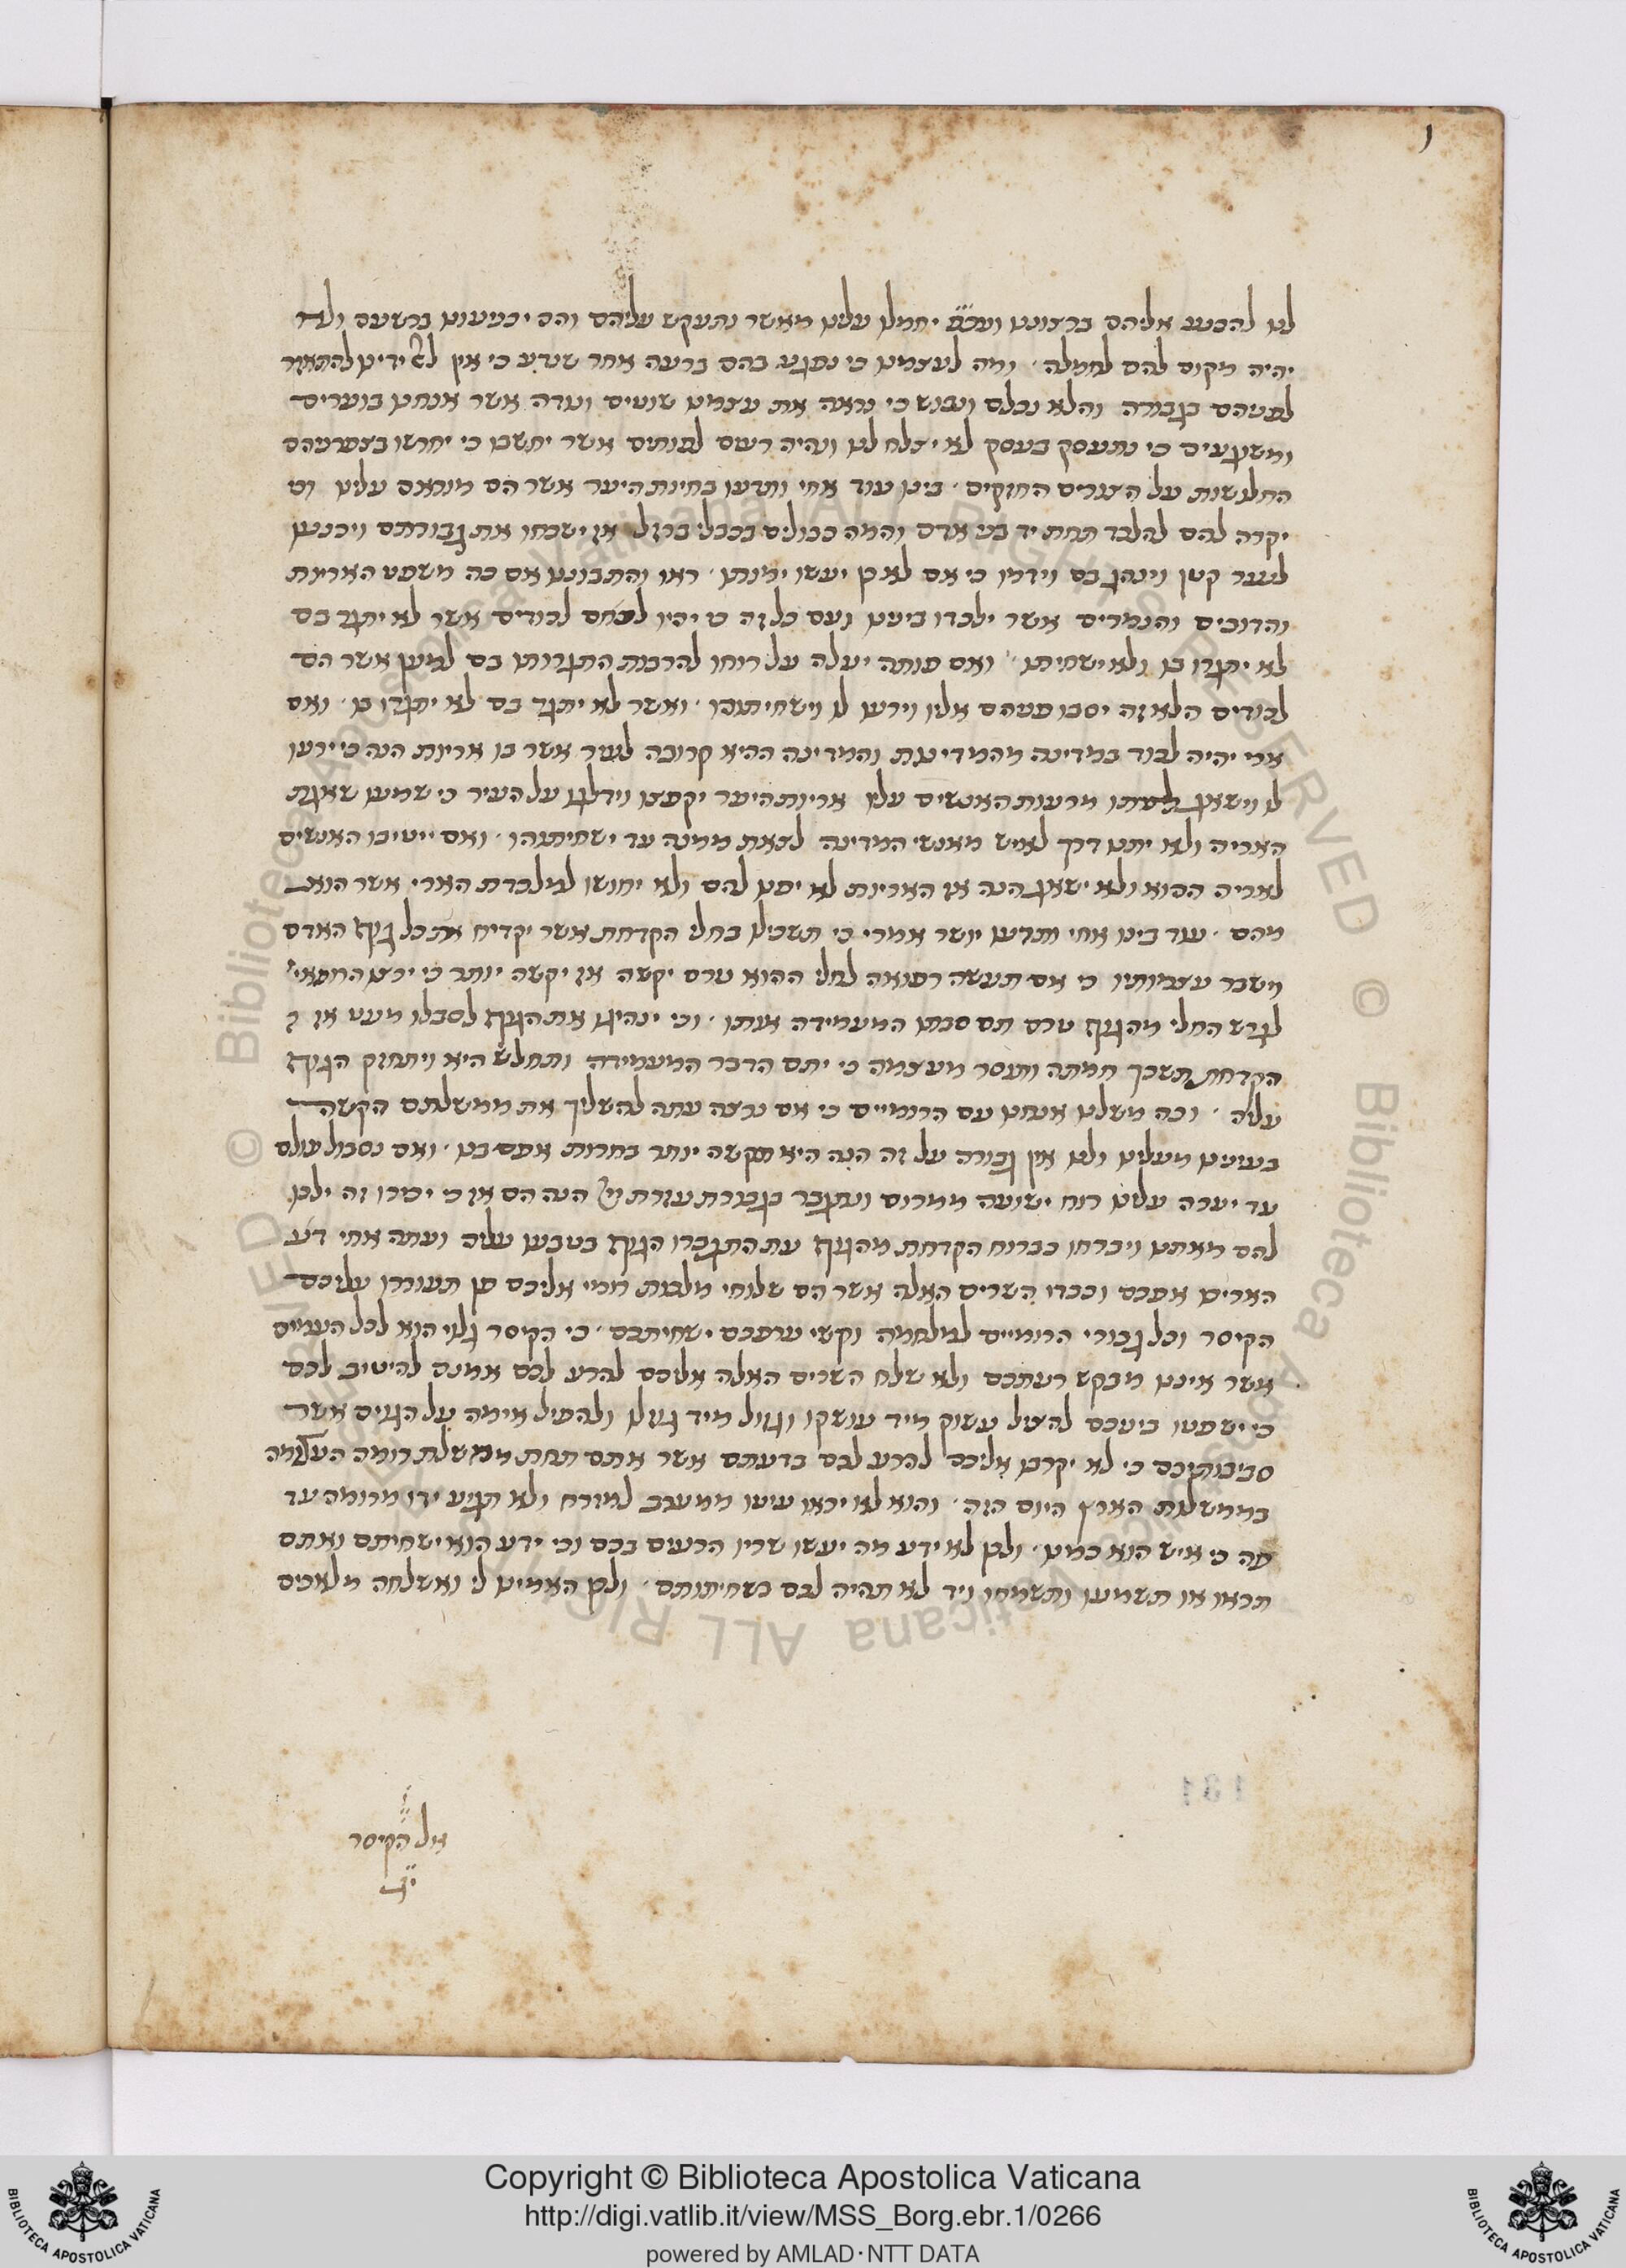 לנו להכנע אליהם ברצוננו ועכ״ם יחמלו עלינו מאשר נתעקש עליהם והם יכניעונו ברשעם ולא
יהיה מקום להם לחמלה ׳ ומה לעצמינו כי נפגע בהם ברעה אחר שנדע כי אין לאל ידינו להתאזר
לפניהם בגבורה והלא נכלם ונבוש כי נראה את עצמינו שוטים ועדה אשר אנחנו בוערים
ומשוגעים כי נתעסק בעסק לא יצלח לנו ונהיה רשם לפותים אשר יחשבו כי יחרשו בצפרים
החלשות על הצורים החזקים ׳ בינו עוד אחי ותדעו בחינת היער אשר הם מוראם עלינו וט
יקרה להם להלכד תחת יד בני אדם והמה כבולים בכבלי ברזל אז ישכחו את גבורתם ויכנעו
לנער קטן וינהג בם וידמו כי אם לא כן יעשו ימותו ׳ ראו והתבוננו אם כה משפט האריות
והדובים והנמרים אשר ילכדו בינינו ועם כל זה כי יהיו לכודים אשר לא יתגר בם
לא יתגרו בו ולא ישחיתו ׳ ואם פותה יעלה על רוחו להרבות התגרותו בם למען אשר הם
לכודים הלא זה יסבו פניהם אליו וירעו לו וישחיתוהו ׳ ואשר לא יתגר בם לא יתגרו בו ׳ ואם
ארי יהיה לכוד במדינה מהמדינות והמדינה ההיא קרובה ליער אשר בו אריות הנה כי ירעו
לו וישאג לצעקתו מרעות האנשים עליו אריות היער יקבצו וידלגו על העיר כי שמעו שאגת
האריה ולא יתנו דרך לאיש מאנשי המדינה לצאת ממנה עד ישחיתוהו ׳ ואם ייטיבו האנשים
לאריה ההוא ולא ישאג הנה אז האריות לא יפנו להם ולא יחושו למלכדת הארי אשר הוא
מהם ׳ עוד בינו אחי ותדעו יושר אמרי כי תשכילו בחלי הקדחת אשר יקדיח את כל גוף האדם
וישבר עצמותיו כי אם תעשה רפואה לחלי ההוא טרם יקשה אז יקשה יותר כי ירצו הרופאי׳
לגרש החלי מהגוף טרם תם סבתו המעמידה אותו ׳ וכי ינהיגו את הגוף לסבלו מעט אז
הקדחת תשכך חמתה ותוסר מעצמה כי יתם הדבר המעמידה ותחלש היא ויתחזק הגוף
עליה ׳ וכה משלנו אנחנו עם הרומיים כי אם נרצה עתה להשליך את ממשלתם הקשה
בעינינו מעלינו ולנו אין גבורה על זה הנה היא תקשה יותר בחרות אפם בנו ׳ ואם נסבול עולם
עד יערה עלינו רוח ישועה ממרום ונתגבר בגבורת עזרת יי׳ הנה הם אז כי ימרו זה ילכו
להם מאתנו ויברחו כברוח הקדחת מהגוף עת התגברו הגוף בטבעו עליה ועתה אחי דעו
האריכו אפכם וכבדו השרים האלה אשר הם שלוחי מלכות רומי אליכם פן תעוררו עליכם
הקיסר וכל גבורי הרומיים למלחמה וקשי ערפכם ישחיתכם ׳ כי הקיסר גלוי הוא לכל העמים
אשר איננו מבקש רעתכם ולא שלח השרים האלה אליכם להרע לכם אמנם להיטיב לכם
כי ישפטו ביניכם להציל עשוק מיד עושקו וגזול מיד גוזלו ולהפיל אימה על הגוים אשר
סביבותיכם כי לא יקרבו אליכם להרע לכם בדעתם אשר אתם תחת ממשלת רומה העצומה
בממשלות הארץ היום הזה ׳ והוא לא יראו עיניו ממערב למזרח ולא תגיע ידו מרומה עד
פה כי איש הוא כמונו ׳ ולכן לא ידע מה יעשו שריו הרעים בכם וכי ידע הוא ישחיתם ואתם
תראו או תשמעו ותשמחו ויד לא תהיה לכם בשחיתותם ׳ ולכן האמינו לי ואשלחה מלאכים
אל הקיסר
131
Copyright © Biblioteca Apostolica Vaticana
http://digi.vatlib.it/view/MSS_Borg.ebr.1/0266
powered by AMLAD·NTT DATA